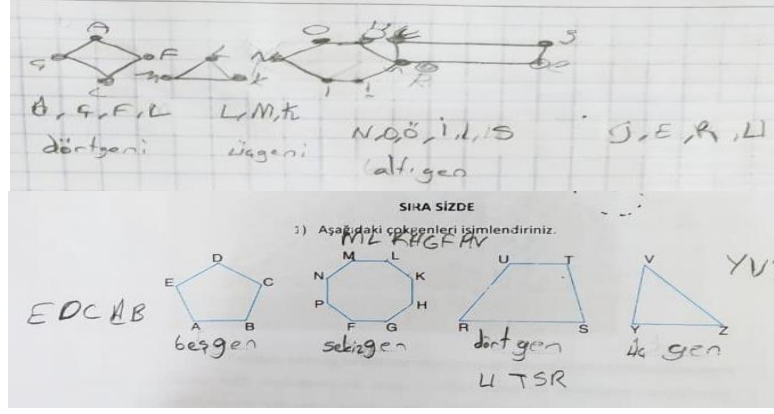 A
F
Ç
L
A, Ç, F, L
dörtgeni
L, M, K
üçgeni
N, O, Ö, İ, I, S
altıgen
J, E, R, U
SIRA SİZDE
1) Aşağıdaki çokgenleri isimlendiriniz.
D
E
C
A
B
EDCAB
beşgen
M
L
N
K
P
H
F
G
sekizgen
U
T
R
S
dörtgen
UTSR
V
Y
Z
YV
üçgen